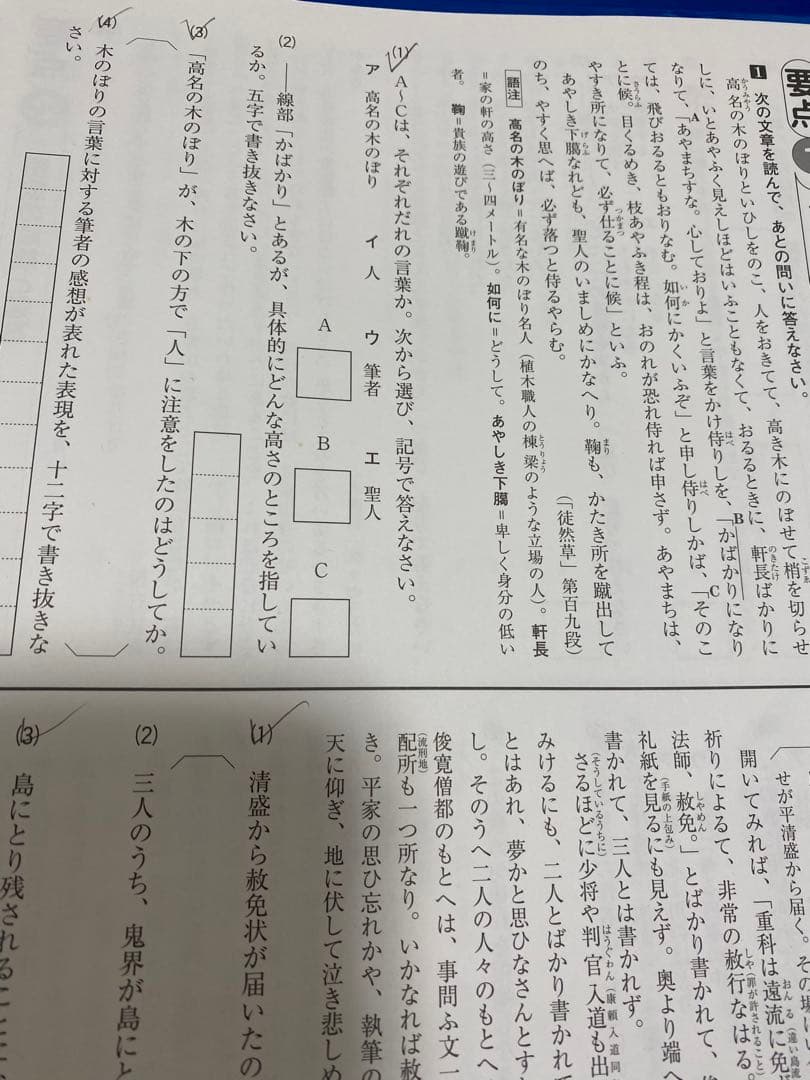 要点
1 次の文章を読んで、あとの問いに答えなさい。
高名の木のぼりといひしをのこ、人をおきてて、高き木にのぼせて梢を切らせ
しに、いとあやふく見えしほどはいふこともなくて、おるるときに、軒長ばかりに
なりて、「あやまちすな。心しておりよ」と言葉をかけ侍りしを、「かばかりになり
ては、飛びおるるともおりなむ。如何にかくいふぞ」と申し侍りしかば、「そのこ
とに候。目くるめき、枝あやふき程は、おのれが恐れ侍れば申さず。あやまちは、
やすき所になりて、必ず仕ることに候」といふ。
あやしき下﨟なれども、聖人のいましめにかなへり。鞠も、かたき所を蹴出して
のち、やすく思へば、必ず落つと侍るやらむ。
(「徒然草」第百九段)
語注 高名の木のぼり=有名な木のぼり名人(植木職人の棟梁のような立場の人)。軒長
=家の軒の高さ(三〜四メートル)。如何に=どうして。あやしき下﨟=卑しく身分の低い
者。鞠=貴族の遊びである蹴鞠。
(1) A〜Cは、それぞれだれの言葉か。次から選び、記号で答えなさい。
ア 高名の木のぼり イ 人 ウ 筆者 エ 聖人
A B C
(2) ——線部「かばかり」とあるが、具体的にどんな高さのところを指してい
るか。五字で書き抜きなさい。
(3) 「高名の木のぼり」が、木の下の方で「人」に注意をしたのはどうしてか。
(4) 木のぼりの言葉に対する筆者の感想が表れた表現を、十二字で書き抜きな
さい。
せが平清盛から届く。その
開いてみれば、「重科は遠流に免
祈りによるて、非常の赦行なはる。
法師、赦免。」とばかり書かれて、
礼紙を見るにも見えず。奥より端へ
書かれて、三人とは書かれず。
さるほどに少将や判官入道も出
みけるにも、二人とばかり書かれて
とはあれ、夢かと思ひなさんとす
し。そのうへ二人の人々のもとへ
俊寛僧都のもとへは、事問ふ文一
配所も一つ所なり。いかなれば赦
き。平家の思ひ忘れかや、執筆の
天に仰ぎ、地に伏して泣き悲しめ
(1) 清盛から赦免状が届いたの
(2) 三人のうち、鬼界が島にと
(3) 島にとり残されることに、